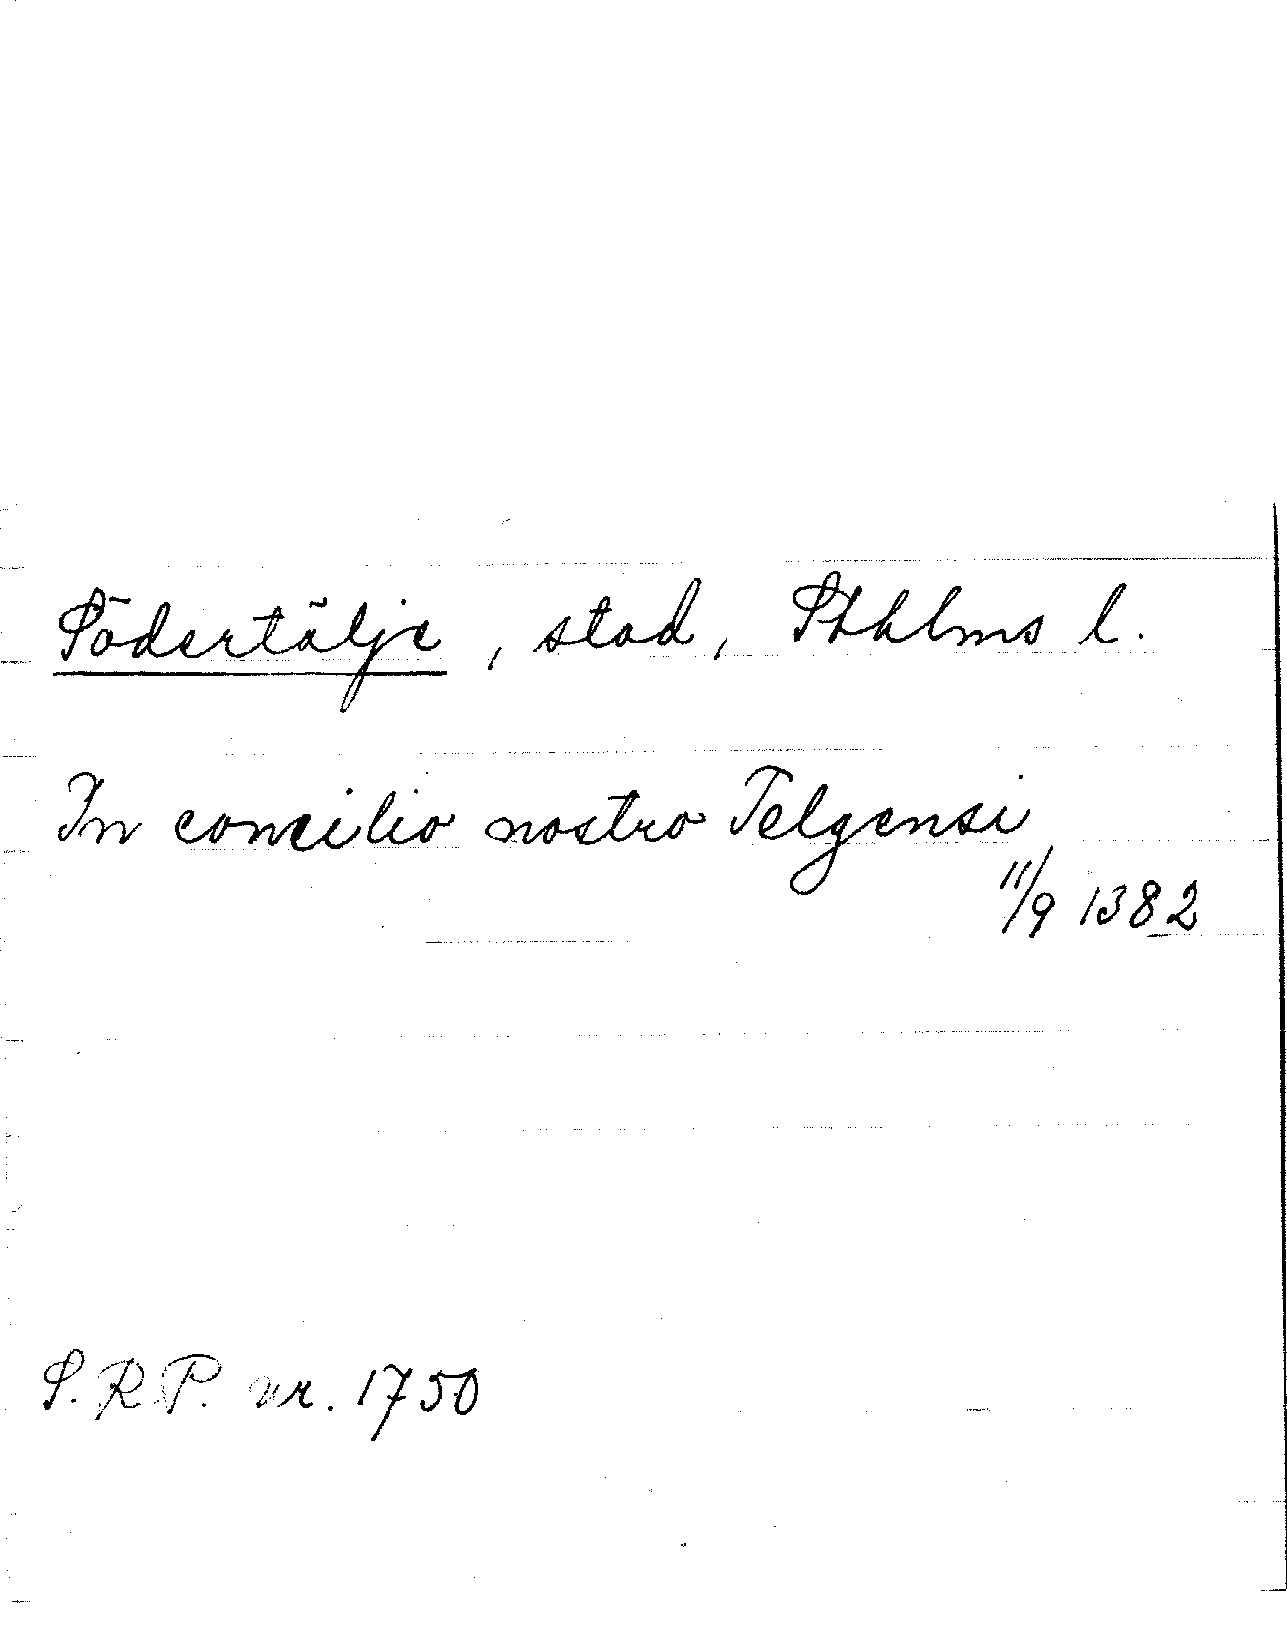 Södertälje, stad, Sthlms l.
In concilio nostro Telgensi
11/9 1382
S.R.P. nr. 1750